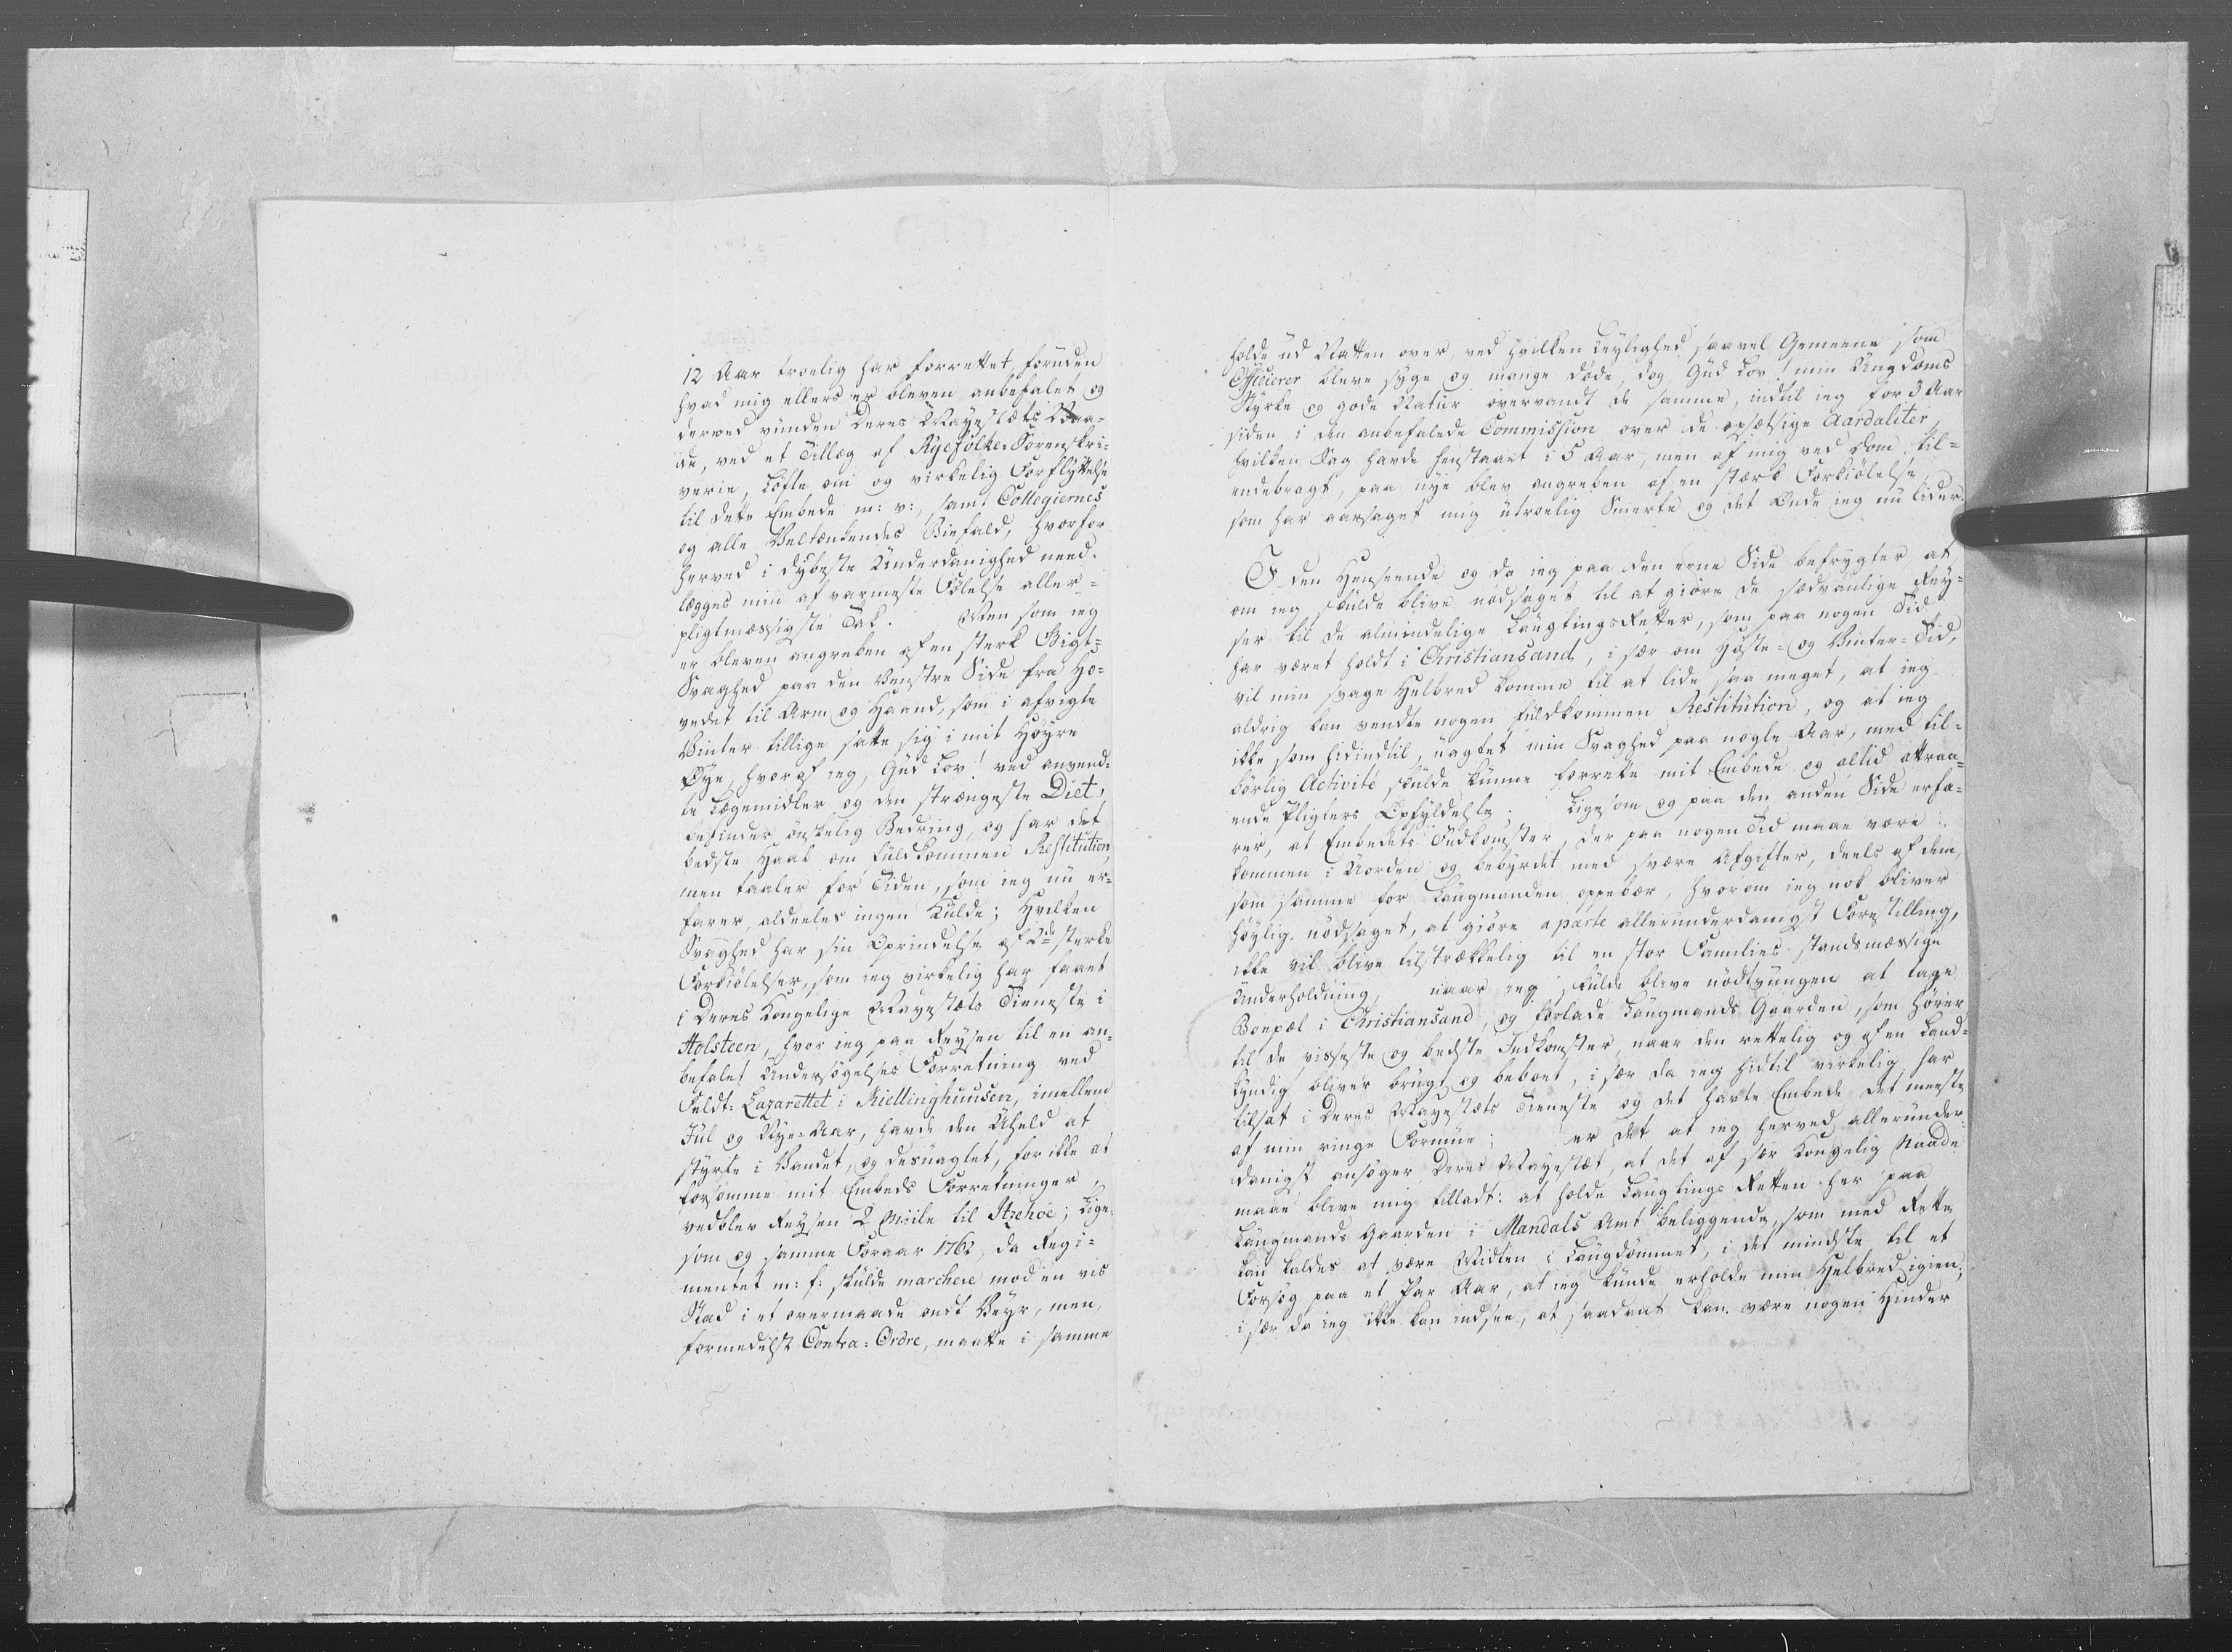 12 Aar troelig har forrettet foruden
hvad mig ellers er bleven anbefalet og
derved vunden Deres Mayestæts Naa-
de, ved et Tillæg af Ryefolke Sorenskri-
verie, Løfte om og virkelig Forflyttelse
til dette Embede m: v:, samt Collegiernes
og alle Veltænkendes Biefald, hvorfor
herved i dybeste Underdanighed need-
lægges min af varmeste Følelse aller-
pligtmæssigste Tak. Men som ieg
er bleven angreben af en sterk Gigt-
Svaghed paa den Venstre Side fra Ho-
vedet til Arm og Haand, som i afvigte
Vinter tillige satte sig i mit Høyre
Øye, hvoraf ieg, Gud Lov! ved anvend-
te Lægemidler og den strængeste Diet,
befinder ønskelig Bedring, og har det
bedste Haab om fuldkommen Restitution,
men taaler for Tiden, som ieg nu er-
farer, aldeeles ingen Kulde; Hvilken
Svaghed har sin Oprindelse af 2de sterke
Forkiølelser, som ieg virkelig har faaet
i Deres Kongelige Mayestæts Tieneste i
Holsteen, hvor ieg paa Reysen til en an-
befalet Undersøgelses Forretning ved
Feldt-Lazarettet i Kiellinghuusen, imellem
Jul og Nye-Aar, havde den Uheld at
styrte i Vandet, og desuagtet, for ikke at
forsømme mit Embeds Forretninger,
vedblev Reysen 2 Miile til Itzehoe; Lige-
som og samme Foraar 1762, da Regi-
mentet m: f: skulde marchere mod en vis
Stad i et overmaade ondt Veyr, men,
formedelst Contra-Ordre, maatte i samme
holde ud Natten over, ved hvilken Leylighed saavel Gemeene som
Officierer bleve syge og mange døde, dog Gud Lov! min Ungdoms
Styrke og gode Natur overvandt de samme, indtil ieg for 3 Aar
siden i den anbefalede Commission over de opsætsige Aardaliter,
hvilken Sag havde henstaaet i 5 Aar, men af mig ved Dom til-
endebragt, paa nye blev angreben af en stærk Forkiølelse
som har aarsaget mig utroelig Smerte og det Onde ieg nu lider.
I den Henseende og da ieg paa den eene Side befrygter, at
om ieg skulde blive nødsaget til at giøre de sædvanlige Rey-
ser til de almindelige LaugtingsRetter, som paa nogen Tid
har været holdt i Christiansand, i sær om Høste- og Vinter-Tid,
vil min svage Helbred komme til at lide saa meget, at ieg
aldrig kan vendte nogen fuldkommen Restitution, og at ieg
ikke som hidindtil, uagtet min Svaghed paa nogle Aar, med til-
børlig Activité skulde kunne forrette mit Embede og altid attraa-
ende Pligters Opfyldelse; Ligesom og paa den anden Side erfa-
rer, at Embedets Indkomster, der paa nogen Tid maae være
kommen i Uorden og bebyrdet med svære Afgifter, deels af dem,
som samme for Laugmanden oppebær, hvorom ieg nok bliver
høylig nødsaget, at giøre aparte allerunderdanigst Forestilling,
ikke vil blive tilstrækkelig til en stor Families standsmæssige
Underholdning, naar ieg skulde blive nødtvungen at tage
Boepæl i Christiansand, og forlade Laugmands Gaarden, som hører
til de visseste og bedste Indkomster, naar den rettelig og af en Land-
kyndig bliver brugt og beboet, i sær da ieg hidtil virkelig har
tilsat i Deres Mayestæts Tieneste og det havte Embede det meeste
af min ringe Formue; er det at ieg herved allerunder-
danigst ansøger Deres Mayestæt, at det af sær Kongelig Naade
maae blive mig tilladt: at holde Laugtings Retten her paa
Laugmands Gaarden i Mandals Amt beliggende, som med Rette
kan kaldes at være Midten i Laugdømmet, i det mindste til et
Forsøg paa et Par Aar, at ieg kunde erholde min Helbred igien;
i sær da ieg ikke kan indsee, at saadant kan være nogen Hinder